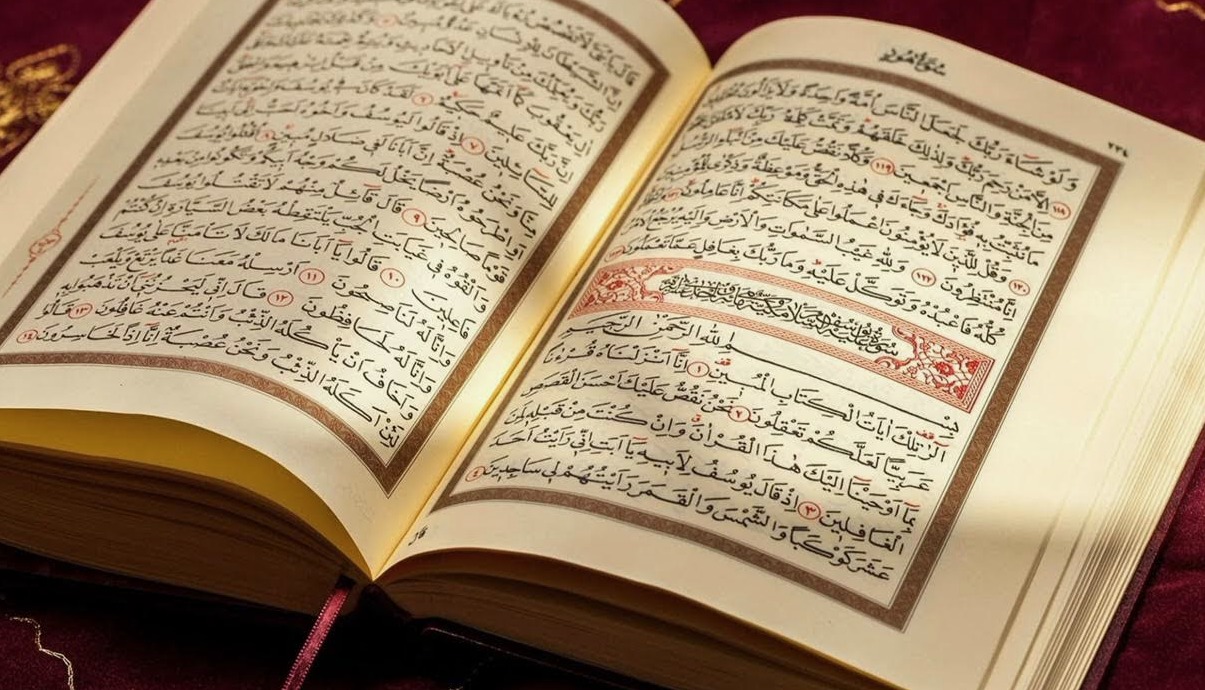 سُورَةُ هُودٍ
٢٣٤
وَلَوْ شَاءَ رَبُّكَ لَجَعَلَ النَّاسَ اُمَّةً وَاحِدَةً وَلَا يَزَالُونَ مُخْتَلِفِينَ
١١٨ اِلَّا مَنْ رَحِمَ رَبُّكَ وَلِذٰلِكَ خَلَقَهُمْ وَتَمَّتْ كَلِمَةُ رَبِّكَ لَاَمْلَـَٔنَّ جَهَنَّمَ
مِنَ الْجِنَّةِ وَالنَّاسِ اَجْمَعِينَ ١١٩ وَكُلًّا نَقُصُّ عَلَيْكَ مِنْ اَنْبَاءِ الرُّسُلِ
مَا نُثَبِّتُ بِهِ فُؤَادَكَ وَجَاءَكَ فِي هٰذِهِ الْحَقُّ وَمَوْعِظَةٌ وَذِكْرٰى لِلْمُؤْمِنِينَ
١٢٠ وَقُلْ لِلَّذِينَ لَا يُؤْمِنُونَ اعْمَلُوا عَلٰى مَكَانَتِكُمْ اِنَّا عَامِلُونَ ١٢١ وَانْتَظِرُوا
اِنَّا مُنْتَظِرُونَ ١٢٢ وَلِلّٰهِ غَيْبُ السَّمٰوَاتِ وَالْاَرْضِ وَاِلَيْهِ يُرْجَعُ الْاَمْرُ
كُلُّهُ فَاعْبُدْهُ وَتَوَكَّلْ عَلَيْهِ وَمَا رَبُّكَ بِغَافِلٍ عَمَّا تَعْمَلُونَ ١٢٣
سُورَةُ يُوسُفَ عَلَيْهِ السَّلَامُ مَكِّيَّةٌ
بِسْمِ اللّٰهِ الرَّحْمٰنِ الرَّحِيمِ
الٓرٰ تِلْكَ اٰيَاتُ الْكِتَابِ الْمُبِينِ ١ اِنَّا اَنْزَلْنَاهُ قُرْءٰنًا
عَرَبِيًّا لَعَلَّكُمْ تَعْقِلُونَ ٢ نَحْنُ نَقُصُّ عَلَيْكَ اَحْسَنَ الْقَصَصِ
بِمَا اَوْحَيْنَا اِلَيْكَ هٰذَا الْقُرْاٰنَ وَاِنْ كُنْتَ مِنْ قَبْلِهِ لَمِنَ
الْغَافِلِينَ ٣ اِذْ قَالَ يُوسُفُ لِاَبِيهِ يَا اَبَتِ اِنِّي رَاَيْتُ اَحَدَ
عَشَرَ كَوْكَبًا وَالشَّمْسَ وَالْقَمَرَ رَاَيْتُهُمْ لِي سَاجِدِينَ ٤
قَالَ
قَالَ يَا بُنَيَّ لَا تَقْصُصْ رُءْيَاكَ عَلٰى
اِنَّ الشَّيْطَانَ لِلْاِنْسَانِ عَدُوٌّ مُبِينٌ ٥ وَكَذٰلِكَ يَجْتَبِيكَ
رَبُّكَ وَيُعَلِّمُكَ مِنْ تَأْوِيلِ الْاَحَادِيثِ وَيُتِمُّ نِعْمَتَهُ عَلَيْكَ وَعَلٰى
اٰلِ يَعْقُوبَ كَمَا اَتَمَّهَا عَلٰى اَبَوَيْكَ مِنْ قَبْلُ اِبْرٰهِيمَ وَاِسْحٰقَ
اِنَّ رَبَّكَ عَلِيمٌ حَكِيمٌ ٦ لَقَدْ كَانَ فِي يُوسُفَ وَاِخْوَتِهِ اٰيَاتٌ
لِلسَّائِلِينَ ٧ اِذْ قَالُوا لَيُوسُفُ وَاَخُوهُ اَحَبُّ اِلٰى اَبِينَا
مِنَّا وَنَحْنُ عُصْبَةٌ اِنَّ اَبَانَا لَفِي ضَلَالٍ مُبِينٍ ٨ اُقْتُلُوا يُوسُفَ
اَوِ اطْرَحُوهُ اَرْضًا يَخْلُ لَكُمْ وَجْهُ اَبِيكُمْ وَتَكُونُوا مِنْ بَعْدِهِ
قَوْمًا صَالِحِينَ ٩ قَالَ قَائِلٌ مِنْهُمْ لَا تَقْتُلُوا يُوسُفَ
وَاَلْقُوهُ فِي غَيَابَتِ الْجُبِّ يَلْتَقِطْهُ بَعْضُ السَّيَّارَةِ اِنْ كُنْتُمْ
فَاعِلِينَ ١٠ قَالُوا يَا اَبَانَا مَا لَكَ لَا تَأْمَنَّا عَلٰى يُوسُفَ
وَاِنَّا لَهُ لَنَاصِحُونَ ١١ اَرْسِلْهُ مَعَنَا غَدًا يَرْتَعْ وَيَلْعَبْ
وَاِنَّا لَهُ لَحَافِظُونَ ١٢ قَالَ اِنِّي لَيَحْزُنُنِي اَنْ تَذْهَبُوا بِهِ
وَاَخَافُ اَنْ يَأْكُلَهُ الذِّئْبُ وَاَنْتُمْ عَنْهُ غَافِلُونَ ١٣ قَالُوا
لَئِنْ اَكَلَهُ الذِّئْبُ وَنَحْنُ عُصْبَةٌ اِنَّا اِذًا لَخَاسِرُونَ ١٤